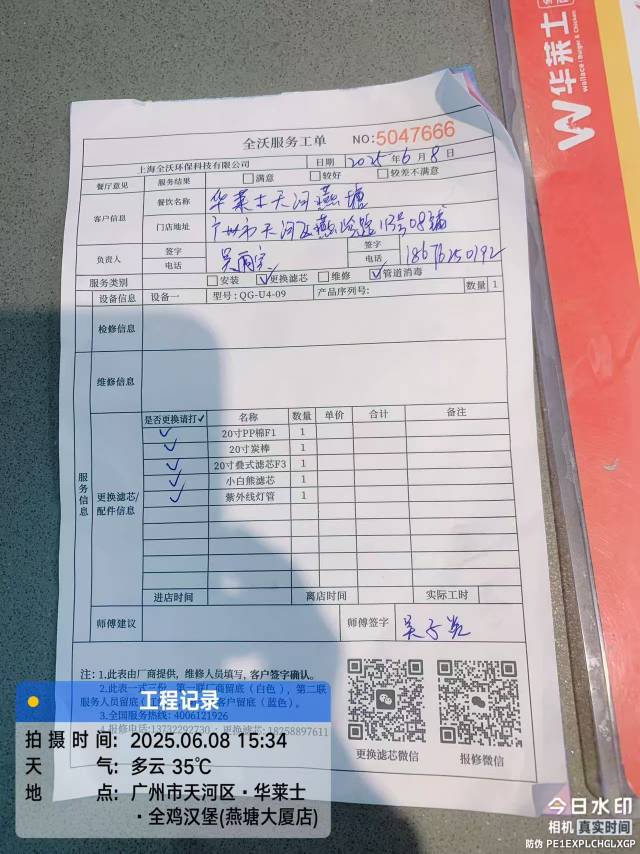 华莱士
Wallace | Burger & Chicken
全沃服务工单
NO:5047666
上海全沃环保科技有限公司 日期 2025年6月8日
餐厅意见 服务结果 满意 较好 较差不满意
客户信息 餐饮名称 华莱士天河燕塘
门店地址 广州市天河区燕岭路113号08铺
负责人 签字 签字
电话 电话 18676250192
服务类别 安装 ✓更换滤芯 维修 ✓管道消毒
设备信息 设备一 型号:QG-U4-09 产品序列号: 数量 1
检修信息
维修信息
服务信息
更换滤芯/配件信息
是否更换请打✓ 名称 数量 单价 合计 备注
✓ 20寸PP棉F1 1
✓ 20寸炭棒 1
✓ 20寸叠式滤芯F3 1
✓ 小白熊滤芯 1
✓ 紫外线灯管 1
进店时间 离店时间 实际工时
师傅建议 师傅签字
注:1.此表由厂商提供,维修人员填写,客户签字确认。
2.此表一式三份,第一联厂商留底(白色),第二联
服务人员留底 客户留底(蓝色)。
3.全国服务热线:4006121926
报修电话:13732292730 更换滤芯:18258897611
更换滤芯微信 报修微信
工程记录
拍摄时间:2025.06.08 15:34
天气:多云 35℃
地点:广州市天河区·华莱士
·全鸡汉堡(燕塘大厦店)
今日水印
相机 真实时间
防伪 PE1EXPLCHGLXGP